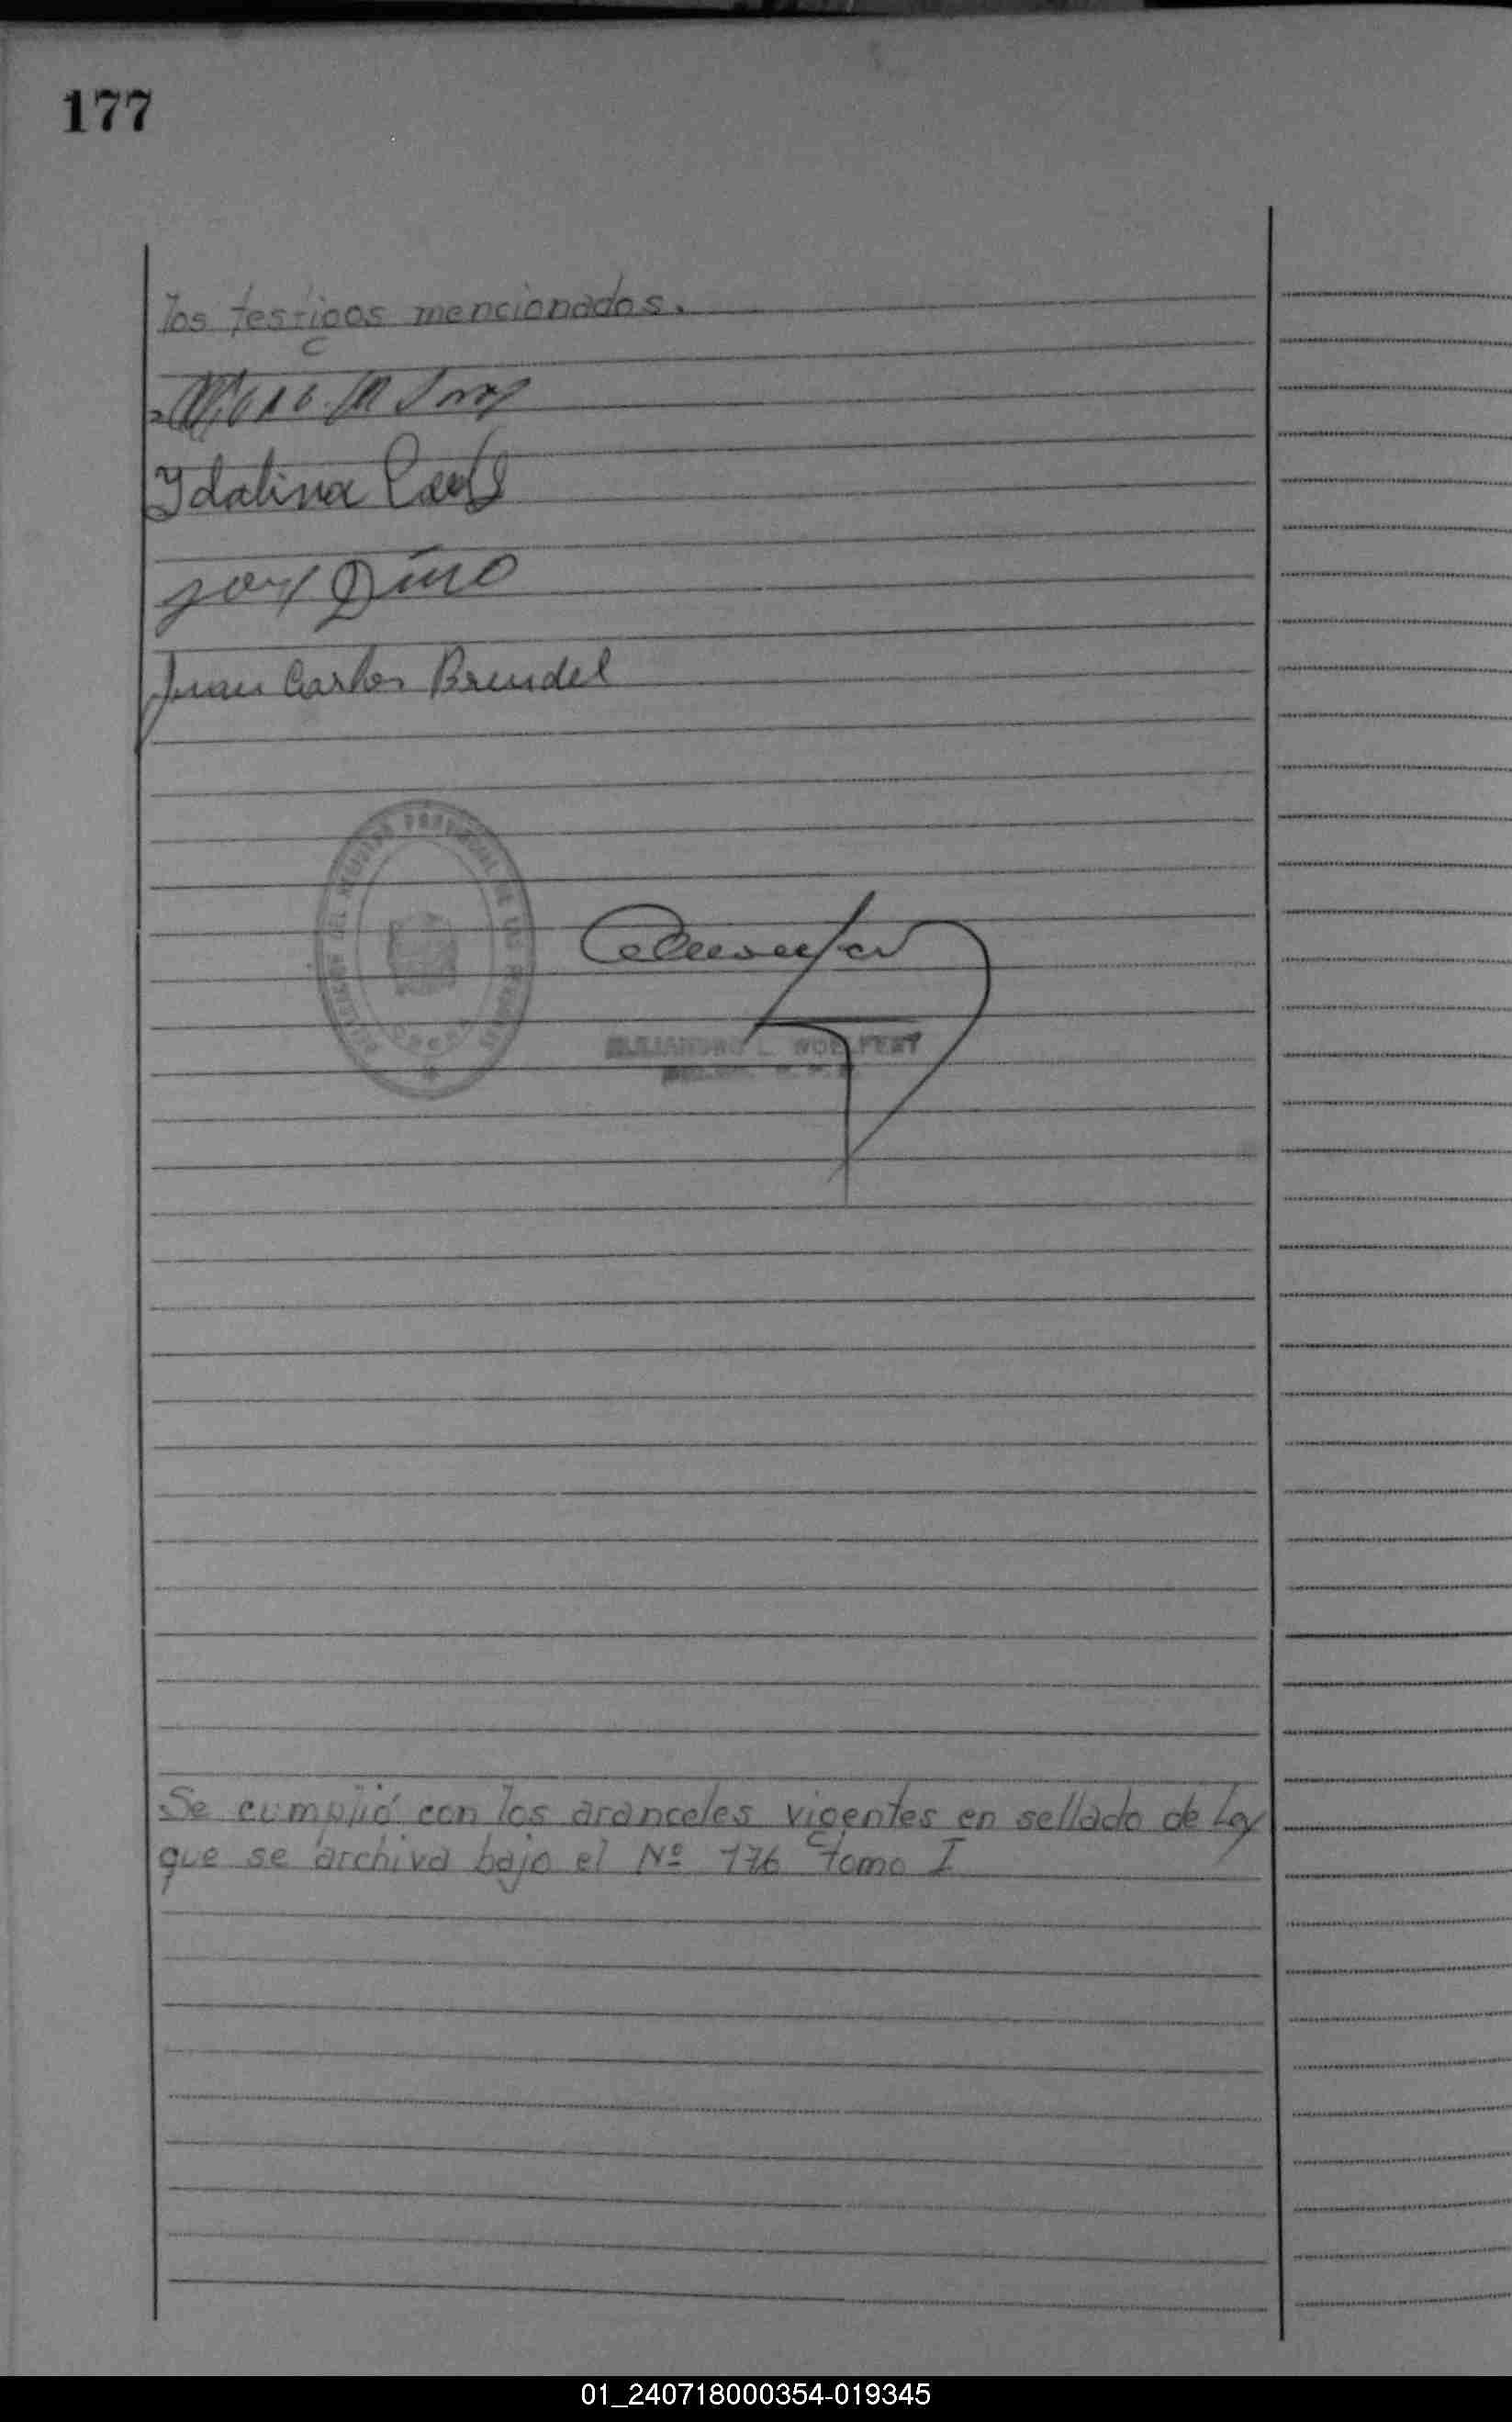 177
los testigos mencionados.
Idalina
Juan Carlos Brendel
DEL REGISTRO PROVINCIAL DE LAS PERSONAS
ALEJANDRO L. WOLFERT
Se cumplió con los aranceles vigentes en sellado de Ley
que se archiva bajo el Nº 176 tomo I
01_240718000354-019345